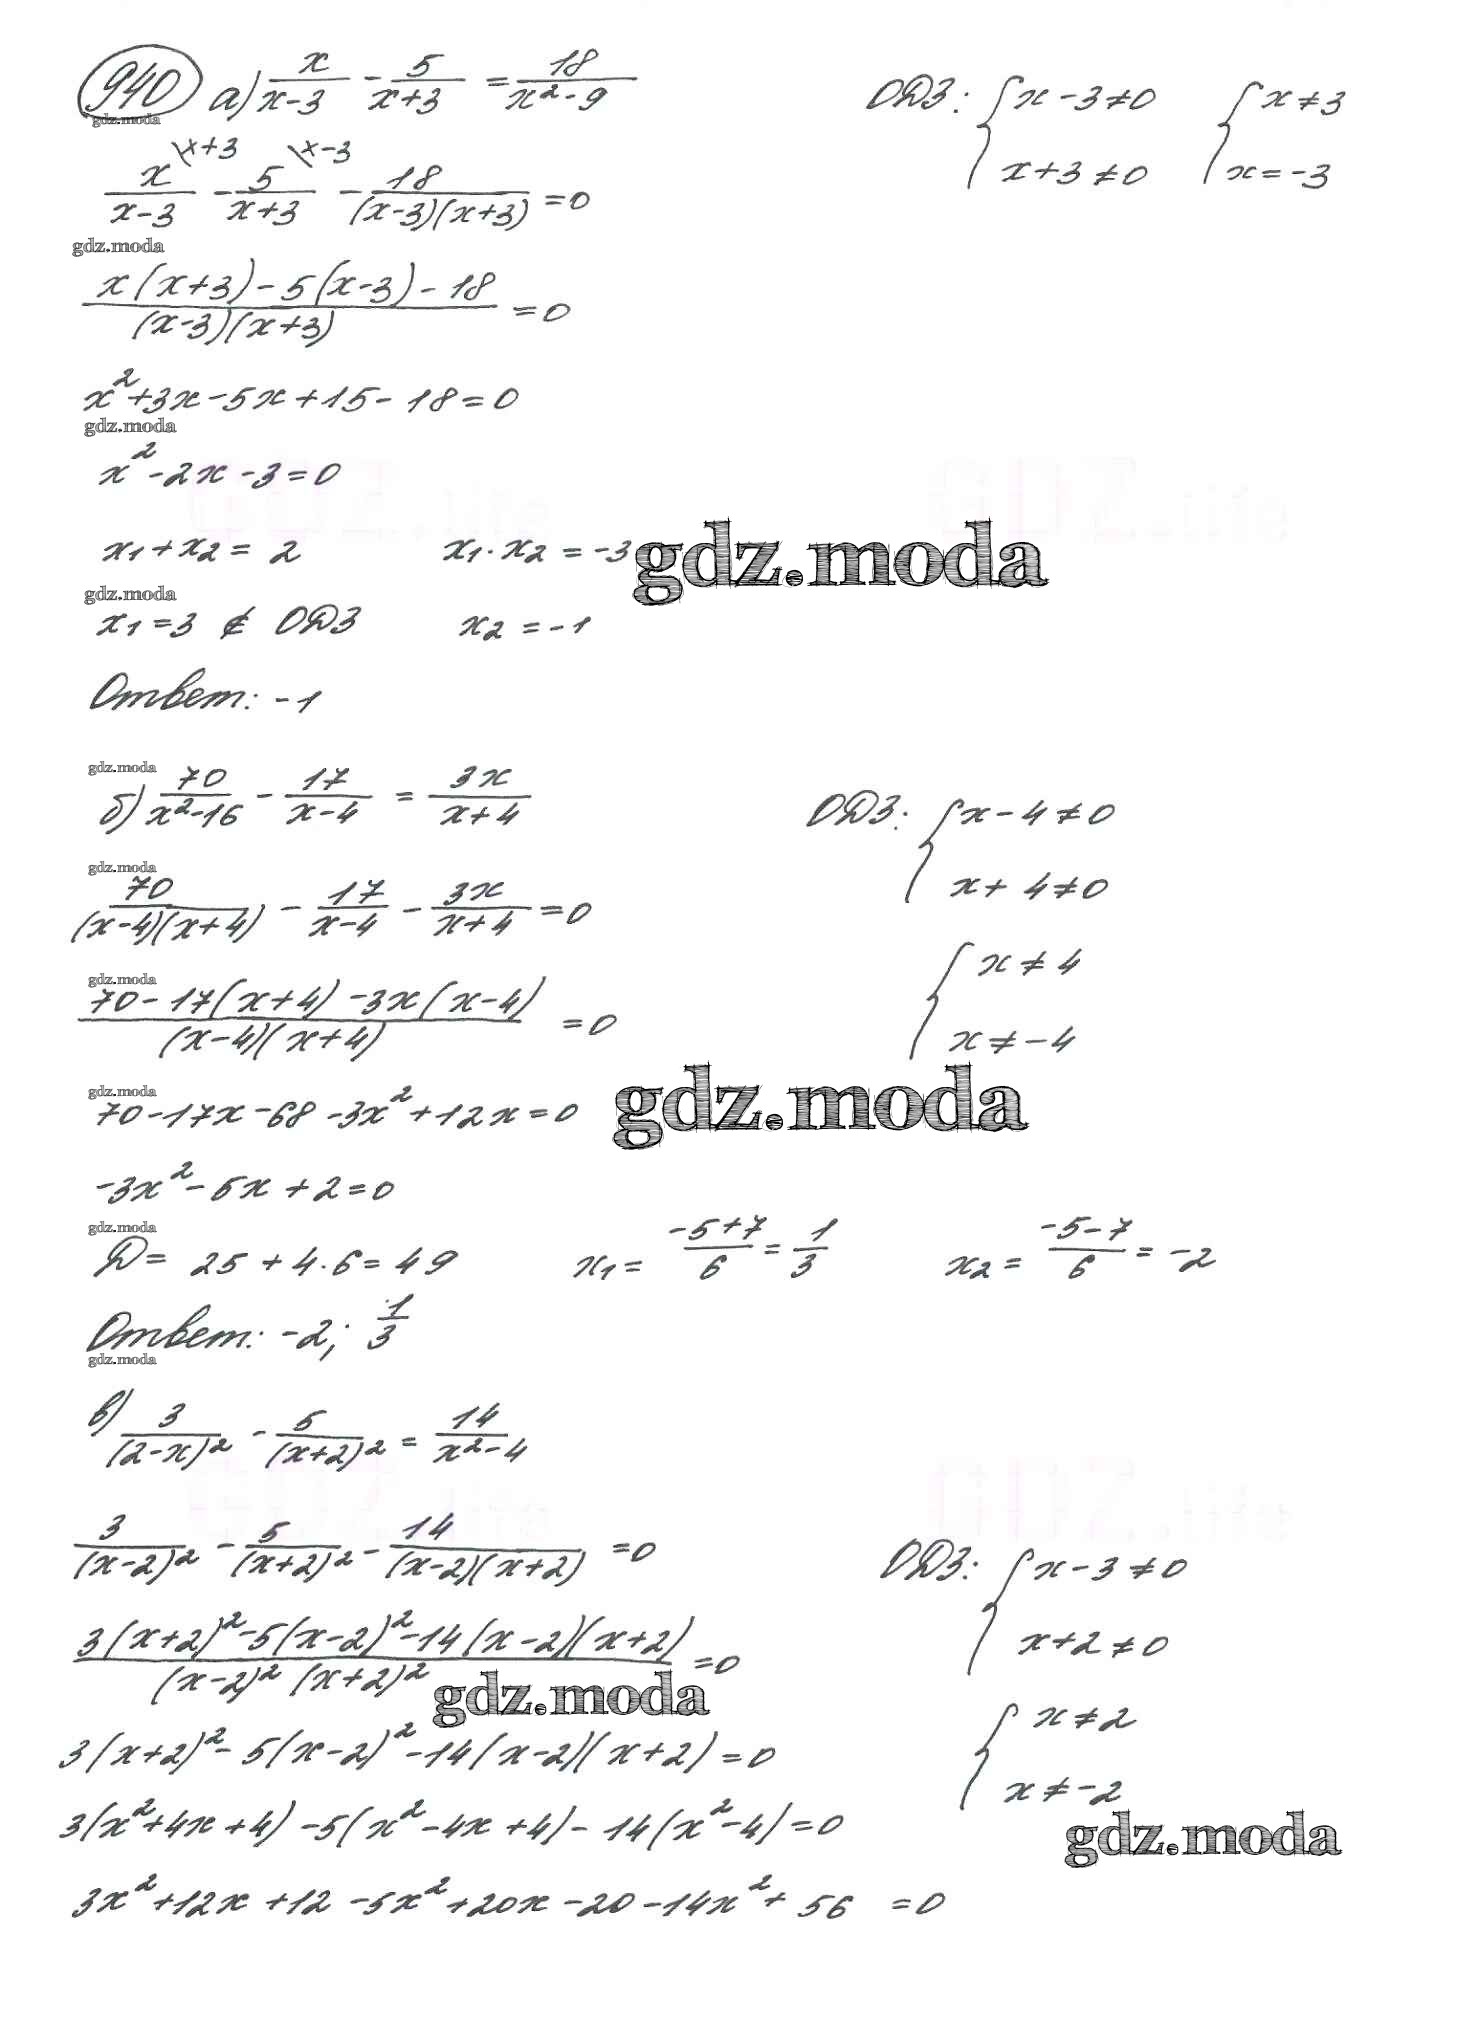 940 а) x/(x-3) - 5/(x+3) = 18/(x²-9)
ОДЗ: { x-3≠0 { x≠3
x+3≠0 x=-3
gdz.moda
x/(x-3) \x+3 - 5/(x+3) \x-3 - 18/((x-3)(x+3)) =0
gdz.moda
(x(x+3)-5(x-3)-18)/((x-3)(x+3)) =0
x²+3x-5x+15-18=0
gdz.moda
x²-2x-3=0
GDZ.life GDZ.life
x₁+x₂= 2 x₁·x₂=-3
gdz.moda
gdz.moda
x₁=3 ∉ ОДЗ x₂=-1
Ответ: -1
gdz.moda
б) 70/(x²-16) - 17/(x-4) = 3x/(x+4)
ОДЗ: { x-4≠0
x+4≠0
gdz.moda
70/((x-4)(x+4)) - 17/(x-4) - 3x/(x+4) =0
{ x≠4
x≠-4
gdz.moda
(70-17(x+4)-3x(x-4))/((x-4)(x+4)) =0
gdz.moda
gdz.moda
70-17x-68-3x²+12x=0
-3x²-5x+2=0
gdz.moda
D= 25+4·6=49 x₁= (-5+7)/6 = 1/3 x₂= (-5-7)/6 = -2
Ответ: -2; 1/3
gdz.moda
в) 3/(2-x)² - 5/(x+2)² = 14/(x²-4)
GDZ.life GDZ.life
3/(x-2)² - 5/(x+2)² - 14/((x-2)(x+2)) =0
ОДЗ: { x-3≠0
x+2≠0
(3(x+2)²-5(x-2)²-14(x-2)(x+2))/((x-2)²(x+2)²) =0
gdz.moda
{ x≠2
x≠-2
3(x+2)²-5(x-2)²-14(x-2)(x+2)=0
gdz.moda
3(x²+4x+4)-5(x²-4x+4)-14(x²-4)=0
3x²+12x+12-5x²+20x-20-14x²+56 =0